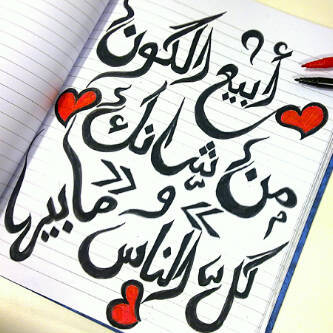 أبيع الكون
من شانك
كل الناس و مابيها